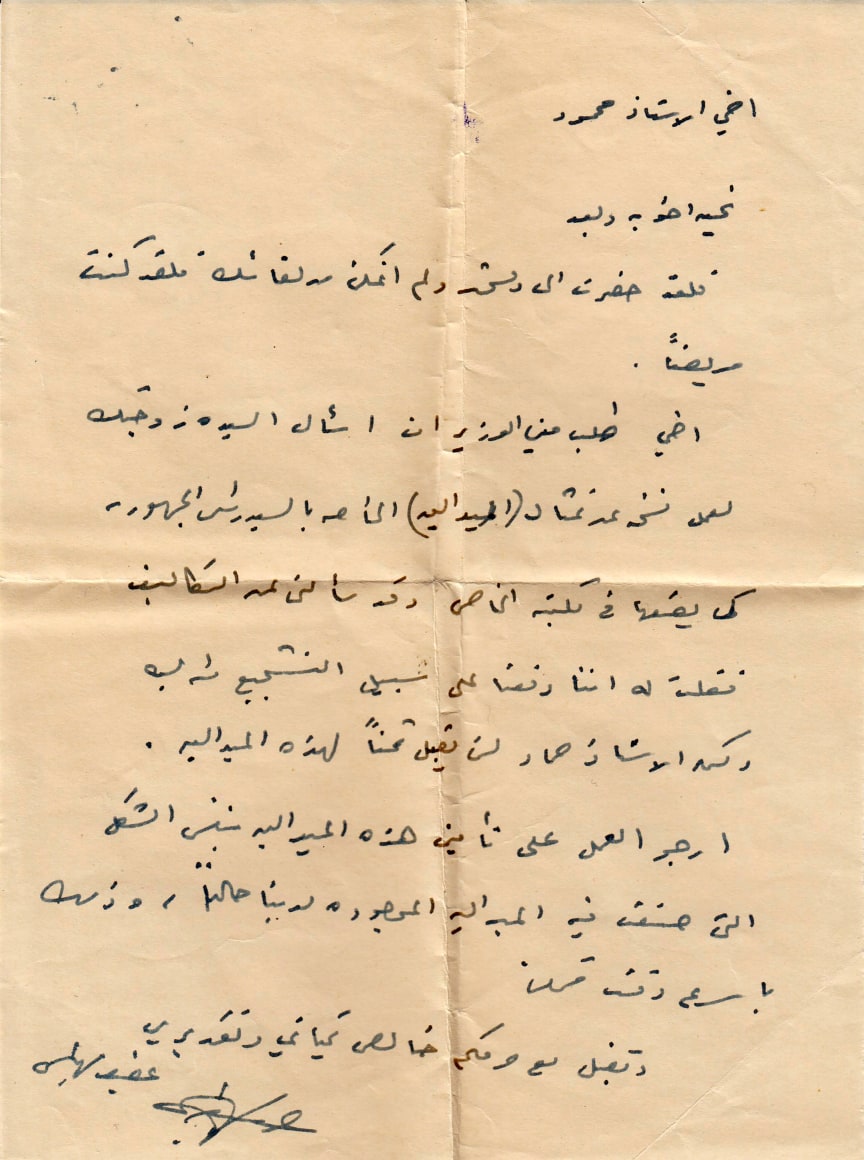 اخي الاستاذ محمود
تحيه اخويه وبعد
فلقد حضرت الى دمشق ولم اتمكن من لقائك فلقد كنت
مريضاً .
اخي طلب مني الوزير ان اسأل السيده زوجتك
لعمل نسخه عن تمثال (الميداليه) الخاصه بالسيد رئيس الجمهوريه
كي يضعها في مكتبه الخاص وقد سألني عن التكاليف
فقلت له اننا دفعنا على سبيل التشجيع
ولكن الاستاذ حماد لن يقبل ثمناً لهذه الميداليه .
ارجو العمل على تأمين هذه الميداليه بنفس الشكل
التي صنعت فيه الميداليه الموجوده لدينا حالياً ، وذلك
باسرع وقت ممكن
وتقبل مع خالص تحياتي وتقديري